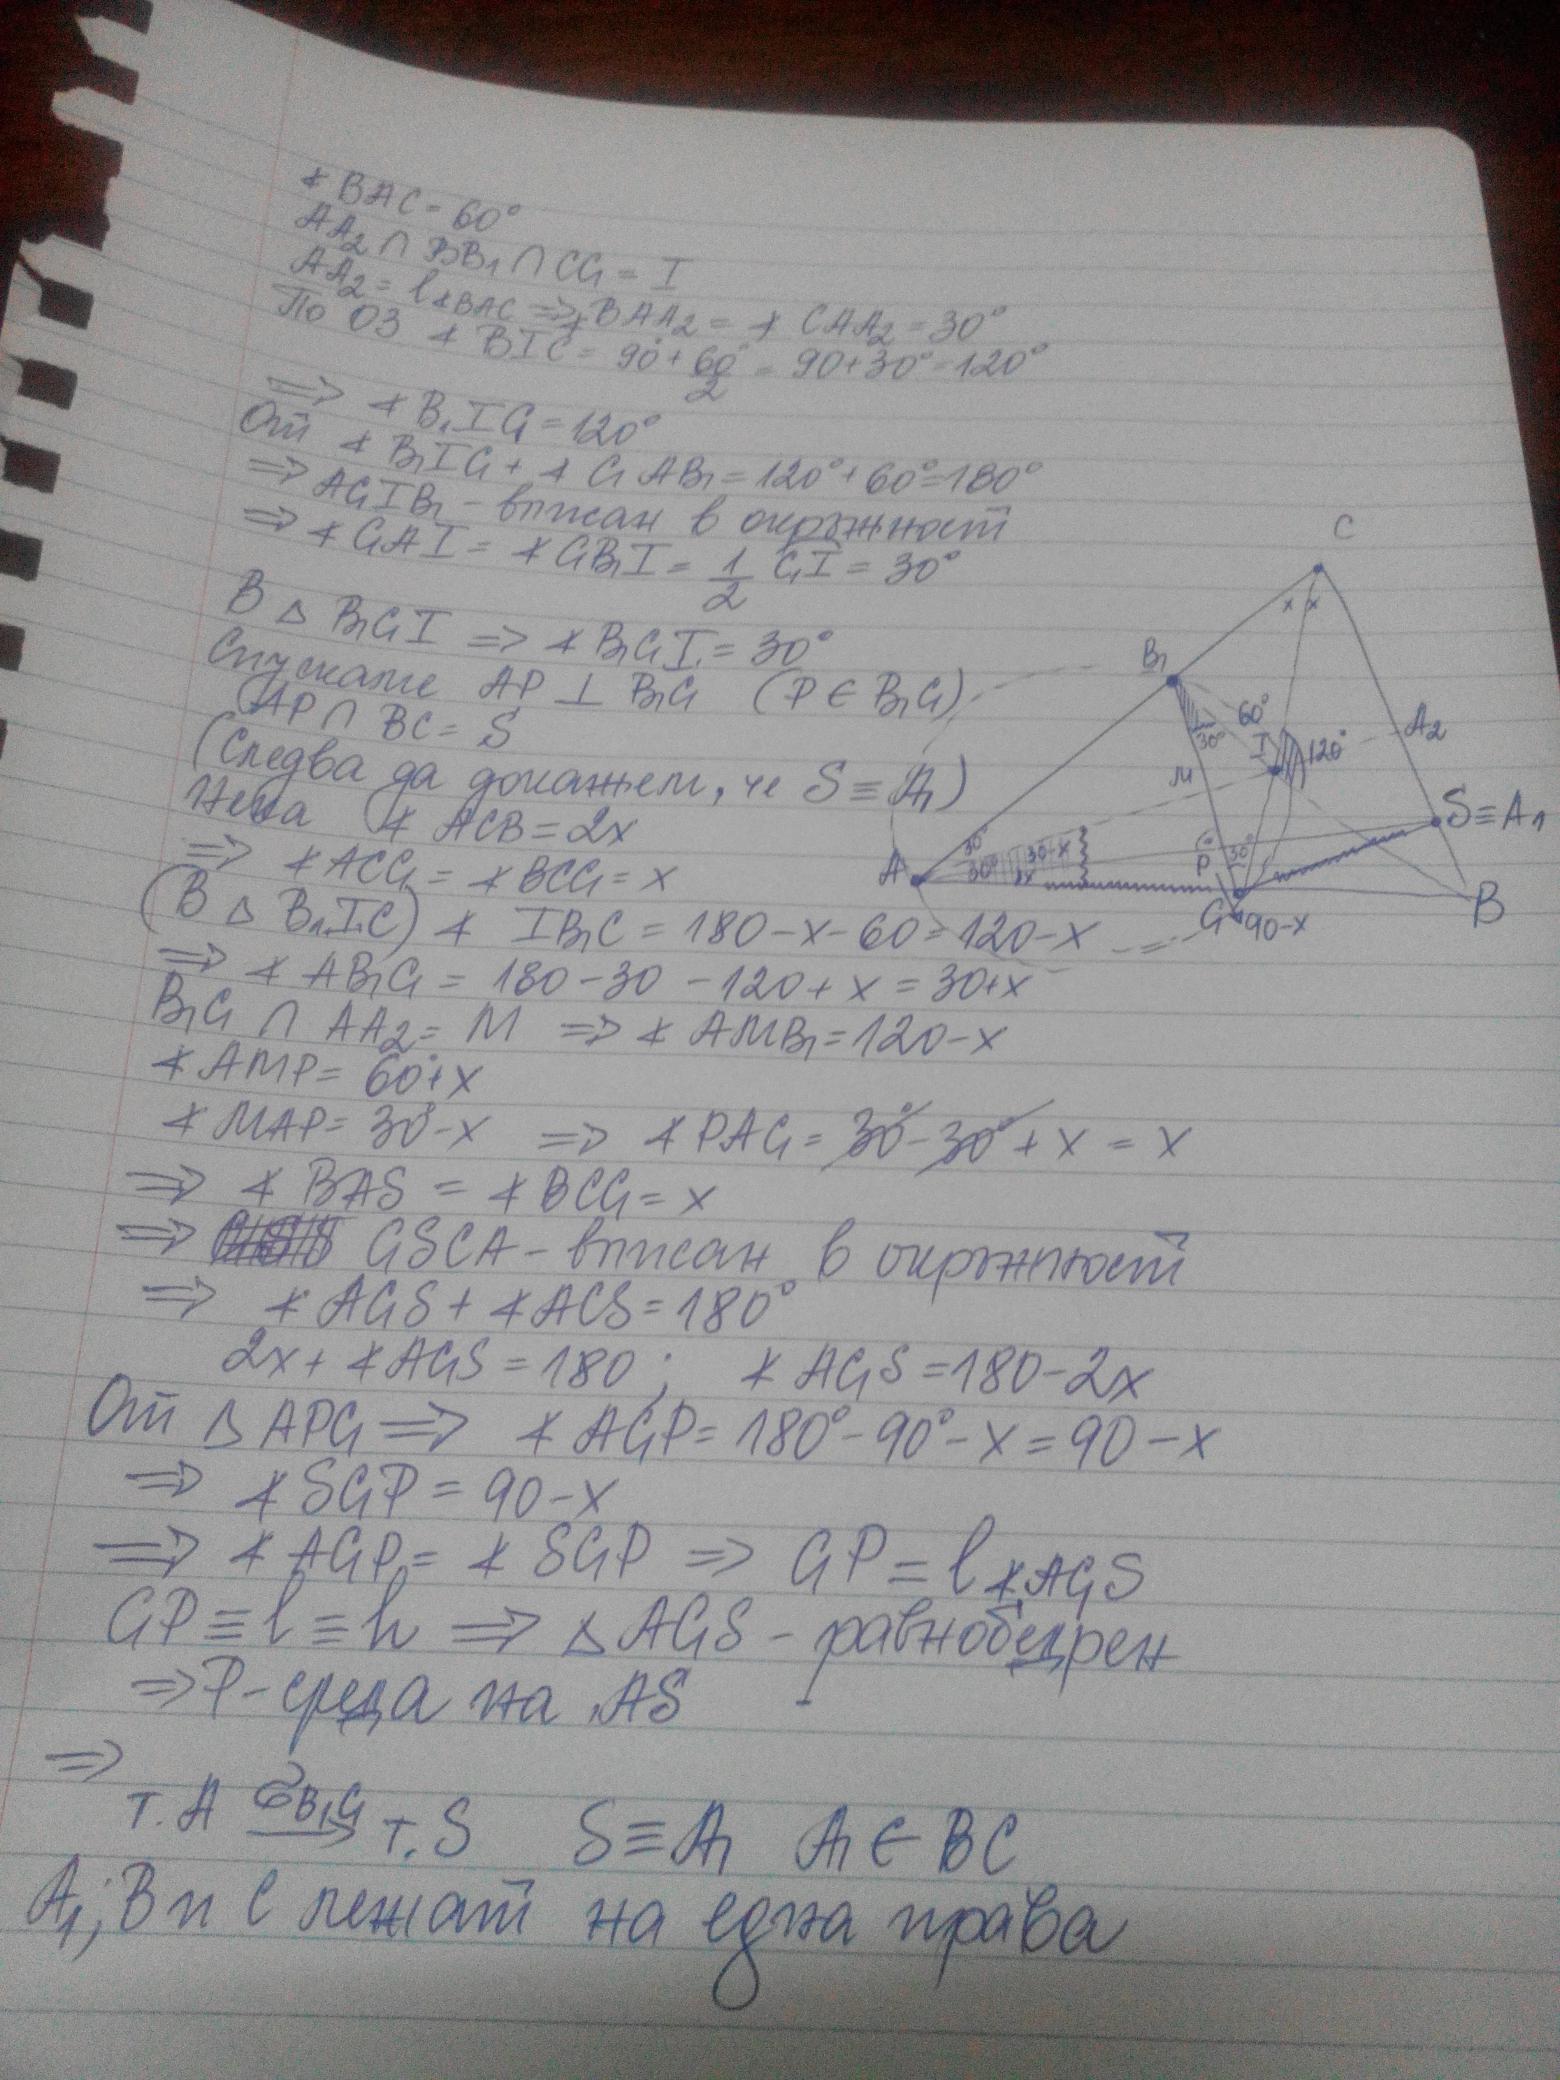 ∢ BAC = 60°
AA₂ ∩ BB₁ ∩ CC₁ = I
AA₂ = l∢BAC ⇒ ∢ BAA₂ = ∢ CAA₂ = 30°
По ОЗ ∢ BIC = 90° + 60°/2 = 90 + 30° = 120°
⇒ ∢ B₁IC₁ = 120°
От ∢ B₁IC₁ + ∢ C₁AB₁ = 120° + 60° = 180°
⇒ AC₁IB₁ - вписан в окръжност
⇒ ∢ C₁AI = ∢ C₁B₁I = 1/2 C₁I = 30°
В △ B₁C₁I ⇒ ∢ B₁C₁I = 30°
Спускаме AP ⊥ B₁C₁ (P ∈ B₁C₁)
(AP ∩ BC = S
(Следва да докажем, че S ≡ A₁)
Нека ∢ ACB = 2x
⇒ ∢ ACC₁ = ∢ BCC₁ = x
(В △ B₁IC) ∢ IB₁C = 180 - x - 60 = 120 - x
⇒ ∢ AB₁C₁ = 180 - 30 - 120 + x = 30 + x
B₁C₁ ∩ AA₂ = M ⇒ ∢ AMB₁ = 120 - x
∢ AMP = 60° + x
∢ MAP = 30° - x ⇒ ∢ PAC₁ = 30° - 30° + x = x
⇒ ∢ BAS = ∢ BCC₁ = x
⇒ C₁SCA - вписан в окръжност
⇒ ∢ AC₁S + ∢ ACS = 180°
2x + ∢ AC₁S = 180 ; ∢ AC₁S = 180 - 2x
От △ APC₁ ⇒ ∢ AC₁P = 180° - 90° - x = 90 - x
⇒ ∢ SC₁P = 90 - x
⇒ ∢ AC₁P = ∢ SC₁P ⇒ C₁P = l∢AC₁S
C₁P ≡ l ≡ h ⇒ △ AC₁S - равнобедрен
⇒ P - среда на AS
⇒
т. A σB₁C₁ → т. S S ≡ A₁ A₁ ∈ BC
A₁; B и C лежат на една права
C
x x
B₁
60°
30°
I
120°
A₂
M
S ≡ A₁
30°
30°
30-x
x
A
P
30°
C₁
90-x
B